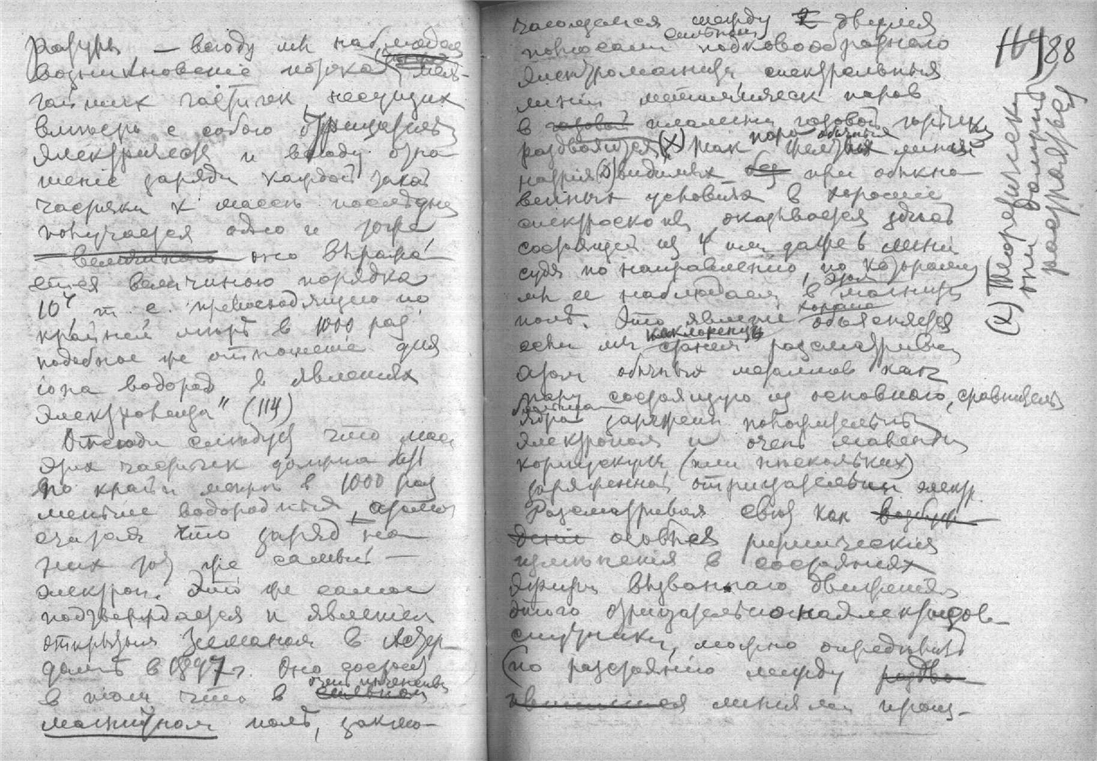 всюду мы наблюдаем
возникновение потока мель-
чайших частичек, несущих
вместе с собою отрицательн
электричество и всюду отно
шение заряда каждой такой
частички к массе последней
получается одно и тоже
оно выража-
ется величиною порядка
10⁷ т. е. превосходящею по
крайней мере в 1000 раз
подобное же отношение для
иона водорода в явлениях
электролиза" (114)
Отсюда следует что масса
этих частичек должна быть
по крайн мере в 1000 раз
меньше водородных атомов
считая что заряд на
них тот же самый —
электрон. Это же самое
подтверждается и явлением
открытым Зееманом в Астер-
даме в 1897 г. Оно состоит
в том что в очень интенсивн
магнитном поле, заклю-
чающемся между 2 двумя
полюсами сильного подковообразного
электромагнита спектральныя
линии металлическ паров
в пламени газовой горелки
раздвояются (х) так обычныя линии
натрия D видимыя при обыкно-
венных условиях в хорошие
спектроскопы оказываются здесь
состоящей из 4 или даже 6 линий
судя по направлению, по которому
мы ее наблюдаем в этом магнитн
поле. Это явление хорошо объясняется
если мы как Лоренц станем рассматривать
атом обычных металлов как
пару состоящую из основного, сравнительно
ядра заряжен положительным
электроном и очень маленькой
корпускулы (или нескольких)
заряженной отрицательным электр.
Рассматривая свет как
особыя ритмическия
изменения в состояниях
эфира вызваннаго движением
этого отрицательно наэлектризов-
спутника, можно определить
(по разстоянию между
линиями проис-
88
(х) Теоретически
они должны
растрояться